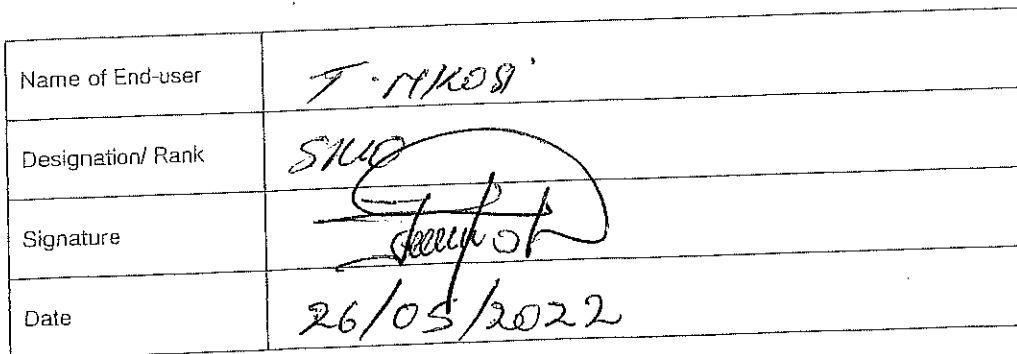 Name of End-user T. MKOSI
Designation/ Rank
Signature
Date 26/05/2022